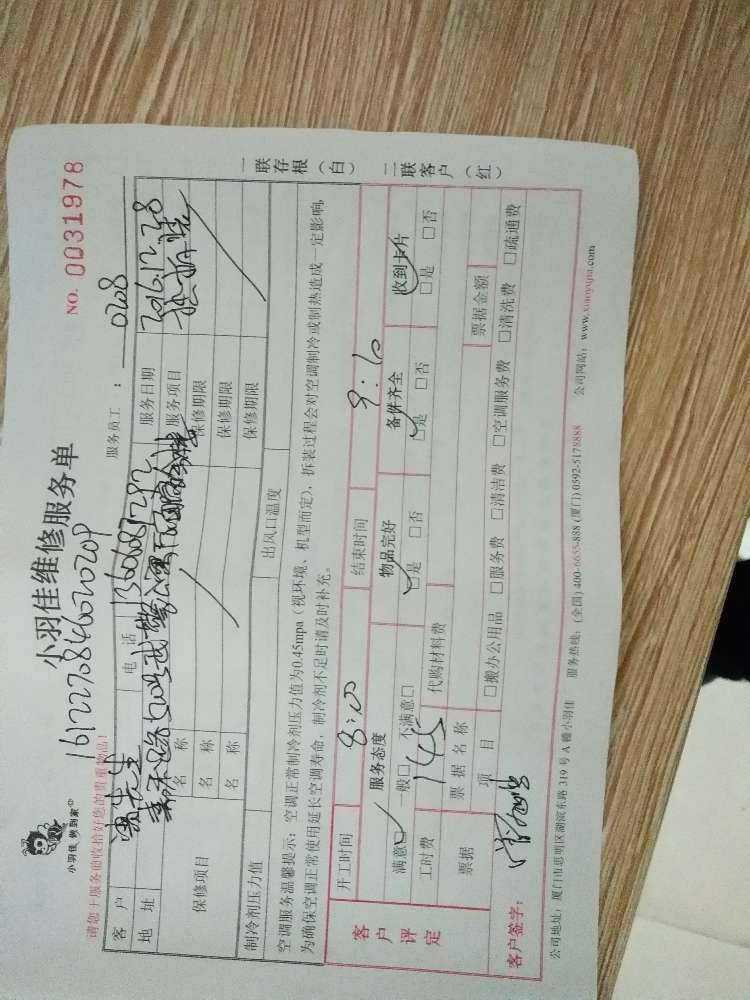 小羽佳 做到家
小羽佳维修服务单
NO. 0031978
请您于服务前收拾好您的贵重物品！
服务员工： 0208
客户 先生 电话 13606931282 服务日期 2016.12.28
地址 服务项目
保修项目 名称 保修期限
名称 保修期限
名称 保修期限
制冷剂压力值 出风口温度
空调服务温馨提示：空调正常制冷剂压力值为0.45mpa（视环境、机型而定），拆装过程会对空调制冷或制热造成一定影响，
为确保空调正常使用延长空调寿命，制冷剂不足时请及时补充。
一联存根（白）
二联客户（红）
开工时间 8:00 结束时间 9:10
客户评定
服务态度 物品完好 备件齐全 收到卡片
满意□ 一般□ 不满意□ □是 □否 □是 □否 □是 □否
工时费 145 代购材料费
票据 票据名称 票据金额
项目 □搬办公用品 □服务费 □清洁费 □空调服务费 □清洗费 □疏通费
客户签字：
公司地址：厦门市思明区湖滨东路319号A幢小羽佳 服务热线：(全国) 400-6655-888 (厦门) 0592-5178888 公司网站：www.xiaoyujia.com